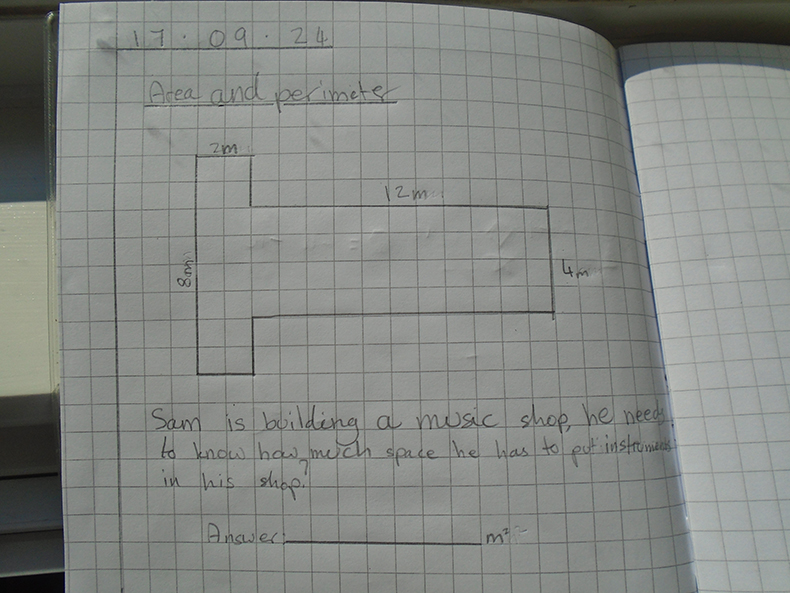 17.09.24
Area and perimeter
2m
12m
8m
4m
Sam is building a music shop, he needs
to know how much space he has to put instruments
in his shop?
Answer: m²